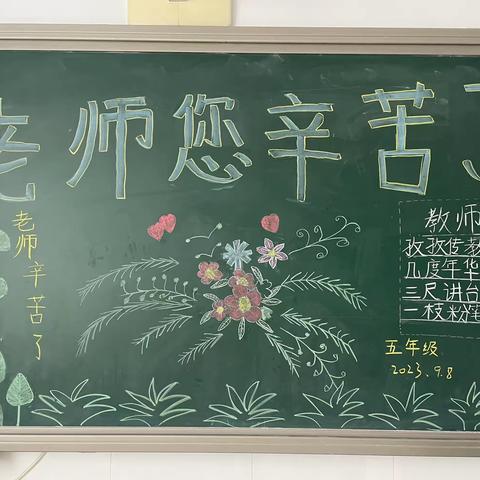 老师您辛苦了
老师辛苦了
教师
孜孜传教
几度年华
三尺讲台
一枝粉笔
五年级
2023.9.8